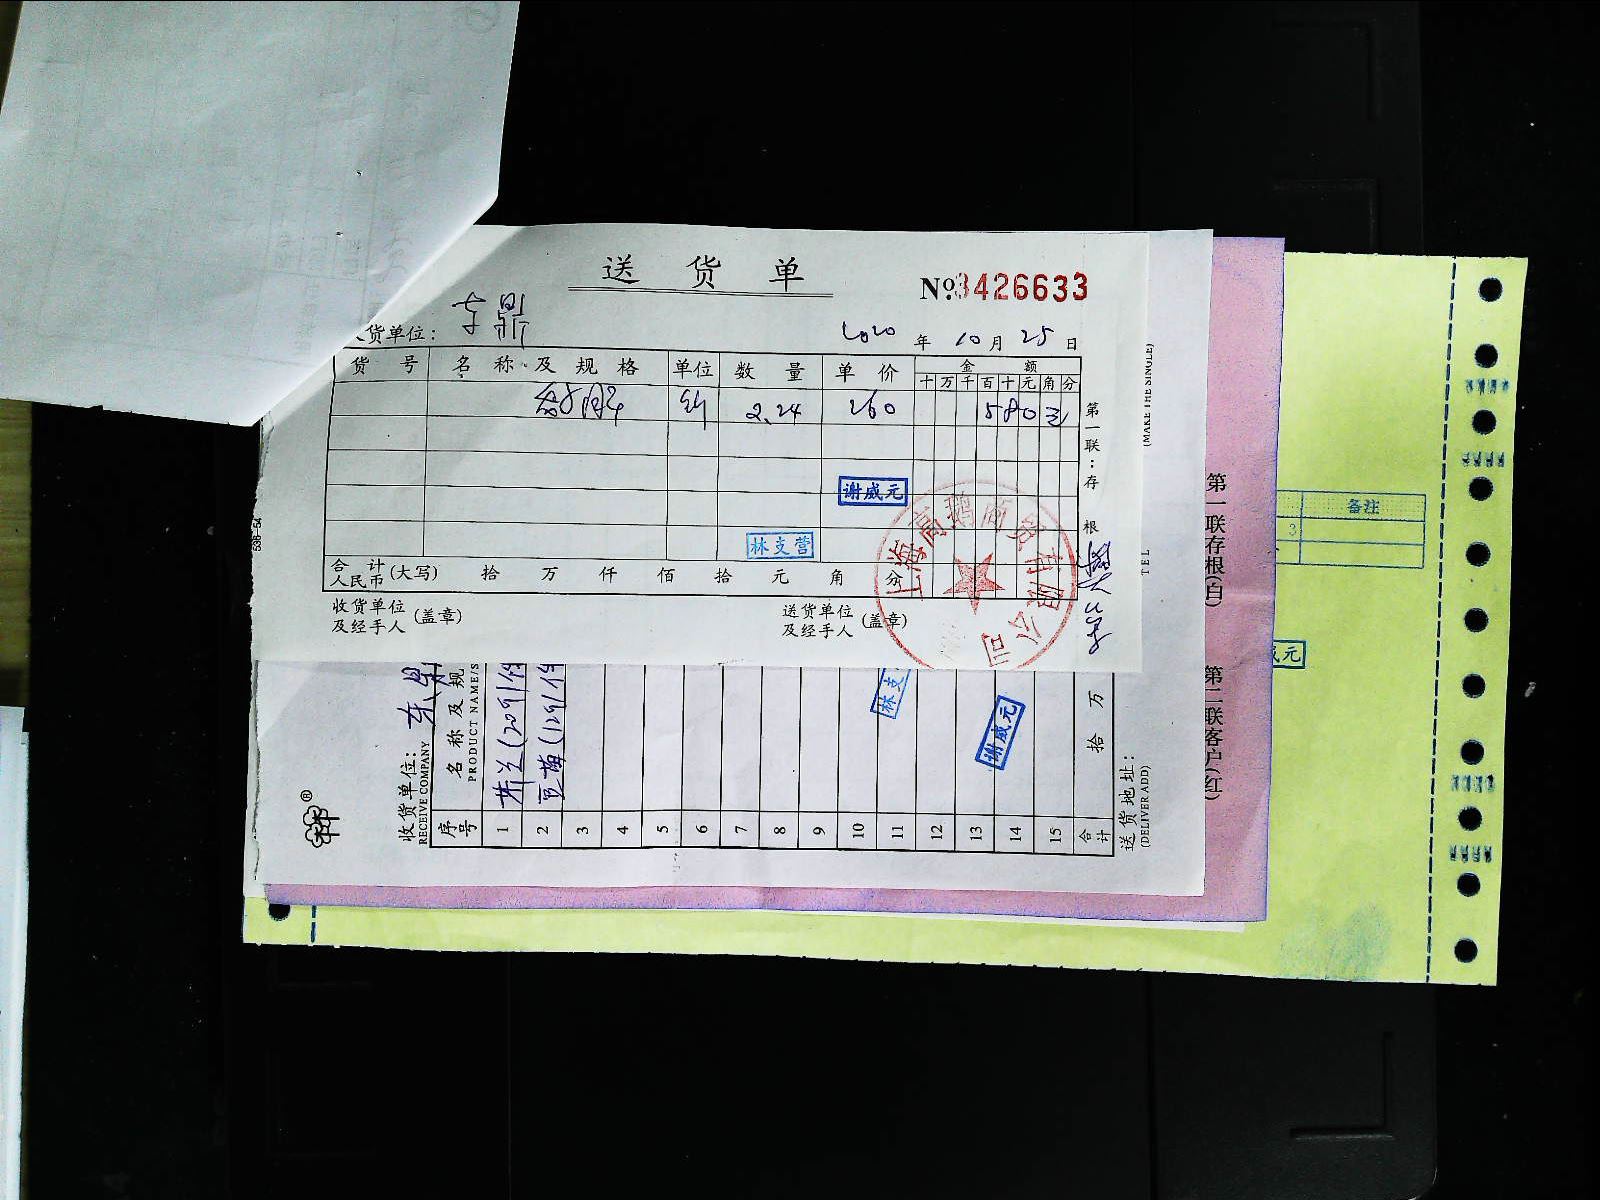 送 货 单
№3426633
货单位: 东鼎
2020 年 10 月 25 日
货 号 名 称 及 规 格 单位 数 量 单 价 金 额
十 万 千 百 十 元 角 分
2.24 260 580
第一联:存根
谢威元
林支营
上海高瑞商贸有限公司
合 计 人民币 (大写) 拾 万 仟 佰 拾 元 角 分
收货单位及经手人 (盖章)
送货单位及经手人 (盖章)
538-54
(MAKE THE SINGLE)
TEL
收货单位: 东鼎
RECEIVE COMPANY
序号 名 称 及 规
PRODUCT NAME/S
1
2
3
4
5
6
7
8
9
10
11
12
13
14
15
合计 拾 万
林支
谢威元
送货地址:
(DELIVER ADD)
第一联存根(白) 第二联客户(红)
备注
3
威元